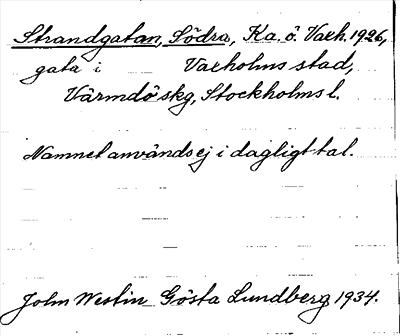 Strandgatan, Södra, Ka. ö. Vaxh. 1926,
gata i Vaxholms stad,
Värmdö skg, Stockholms l.
Namnet användsej i dagligt tal.
John Westin Gösta Lundberg 1934.